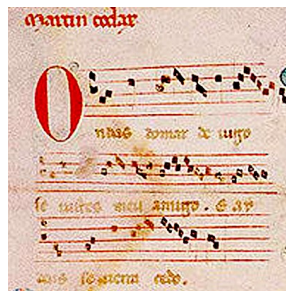 martin codax
Ondas do mar de uigo
se uistes meu amigo. E ay
deus se uerra cedo.